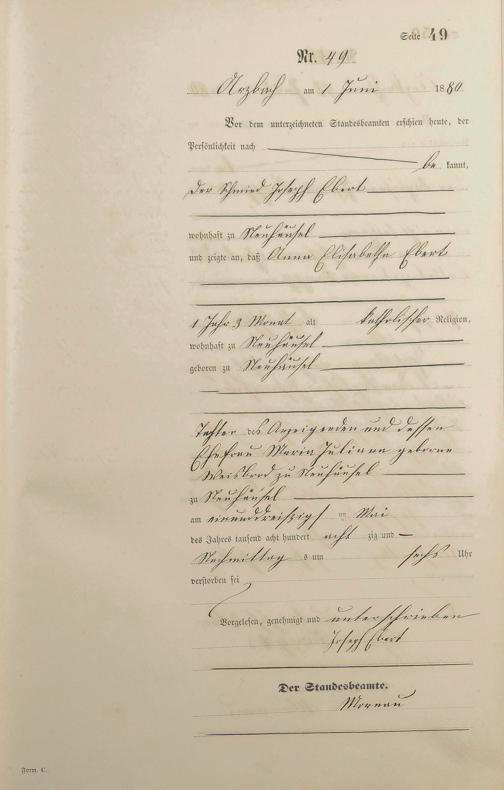 Seite 49
Nr. 49
Arzbach am 1 Juni 1880.
Vor dem unterzeichneten Standesbeamten erschien heute, der
Persönlichkeit nach
be kannt,
der Schmied Joseph Ebert
wohnhaft zu Neuhäusel
und zeigte an, daß Anna Elisabetha Ebert
1 Jahr 3 Monat alt katholischer Religion,
wohnhaft zu Neuhäusel
geboren zu Neuhäusel
Tochter des Anzeigenden und dessen
Ehefrau Maria Juliana geborne
Weisbrod zu Neuhäusel
zu Neuhäusel
am einunddreißigst en Mai
des Jahres tausend acht hundert acht zig und
Nachmittag s um sechs Uhr
verstorben sei
Vorgelesen, genehmigt und unterschrieben
Joseph Ebert
Der Standesbeamte.
Mornau
Form. C.